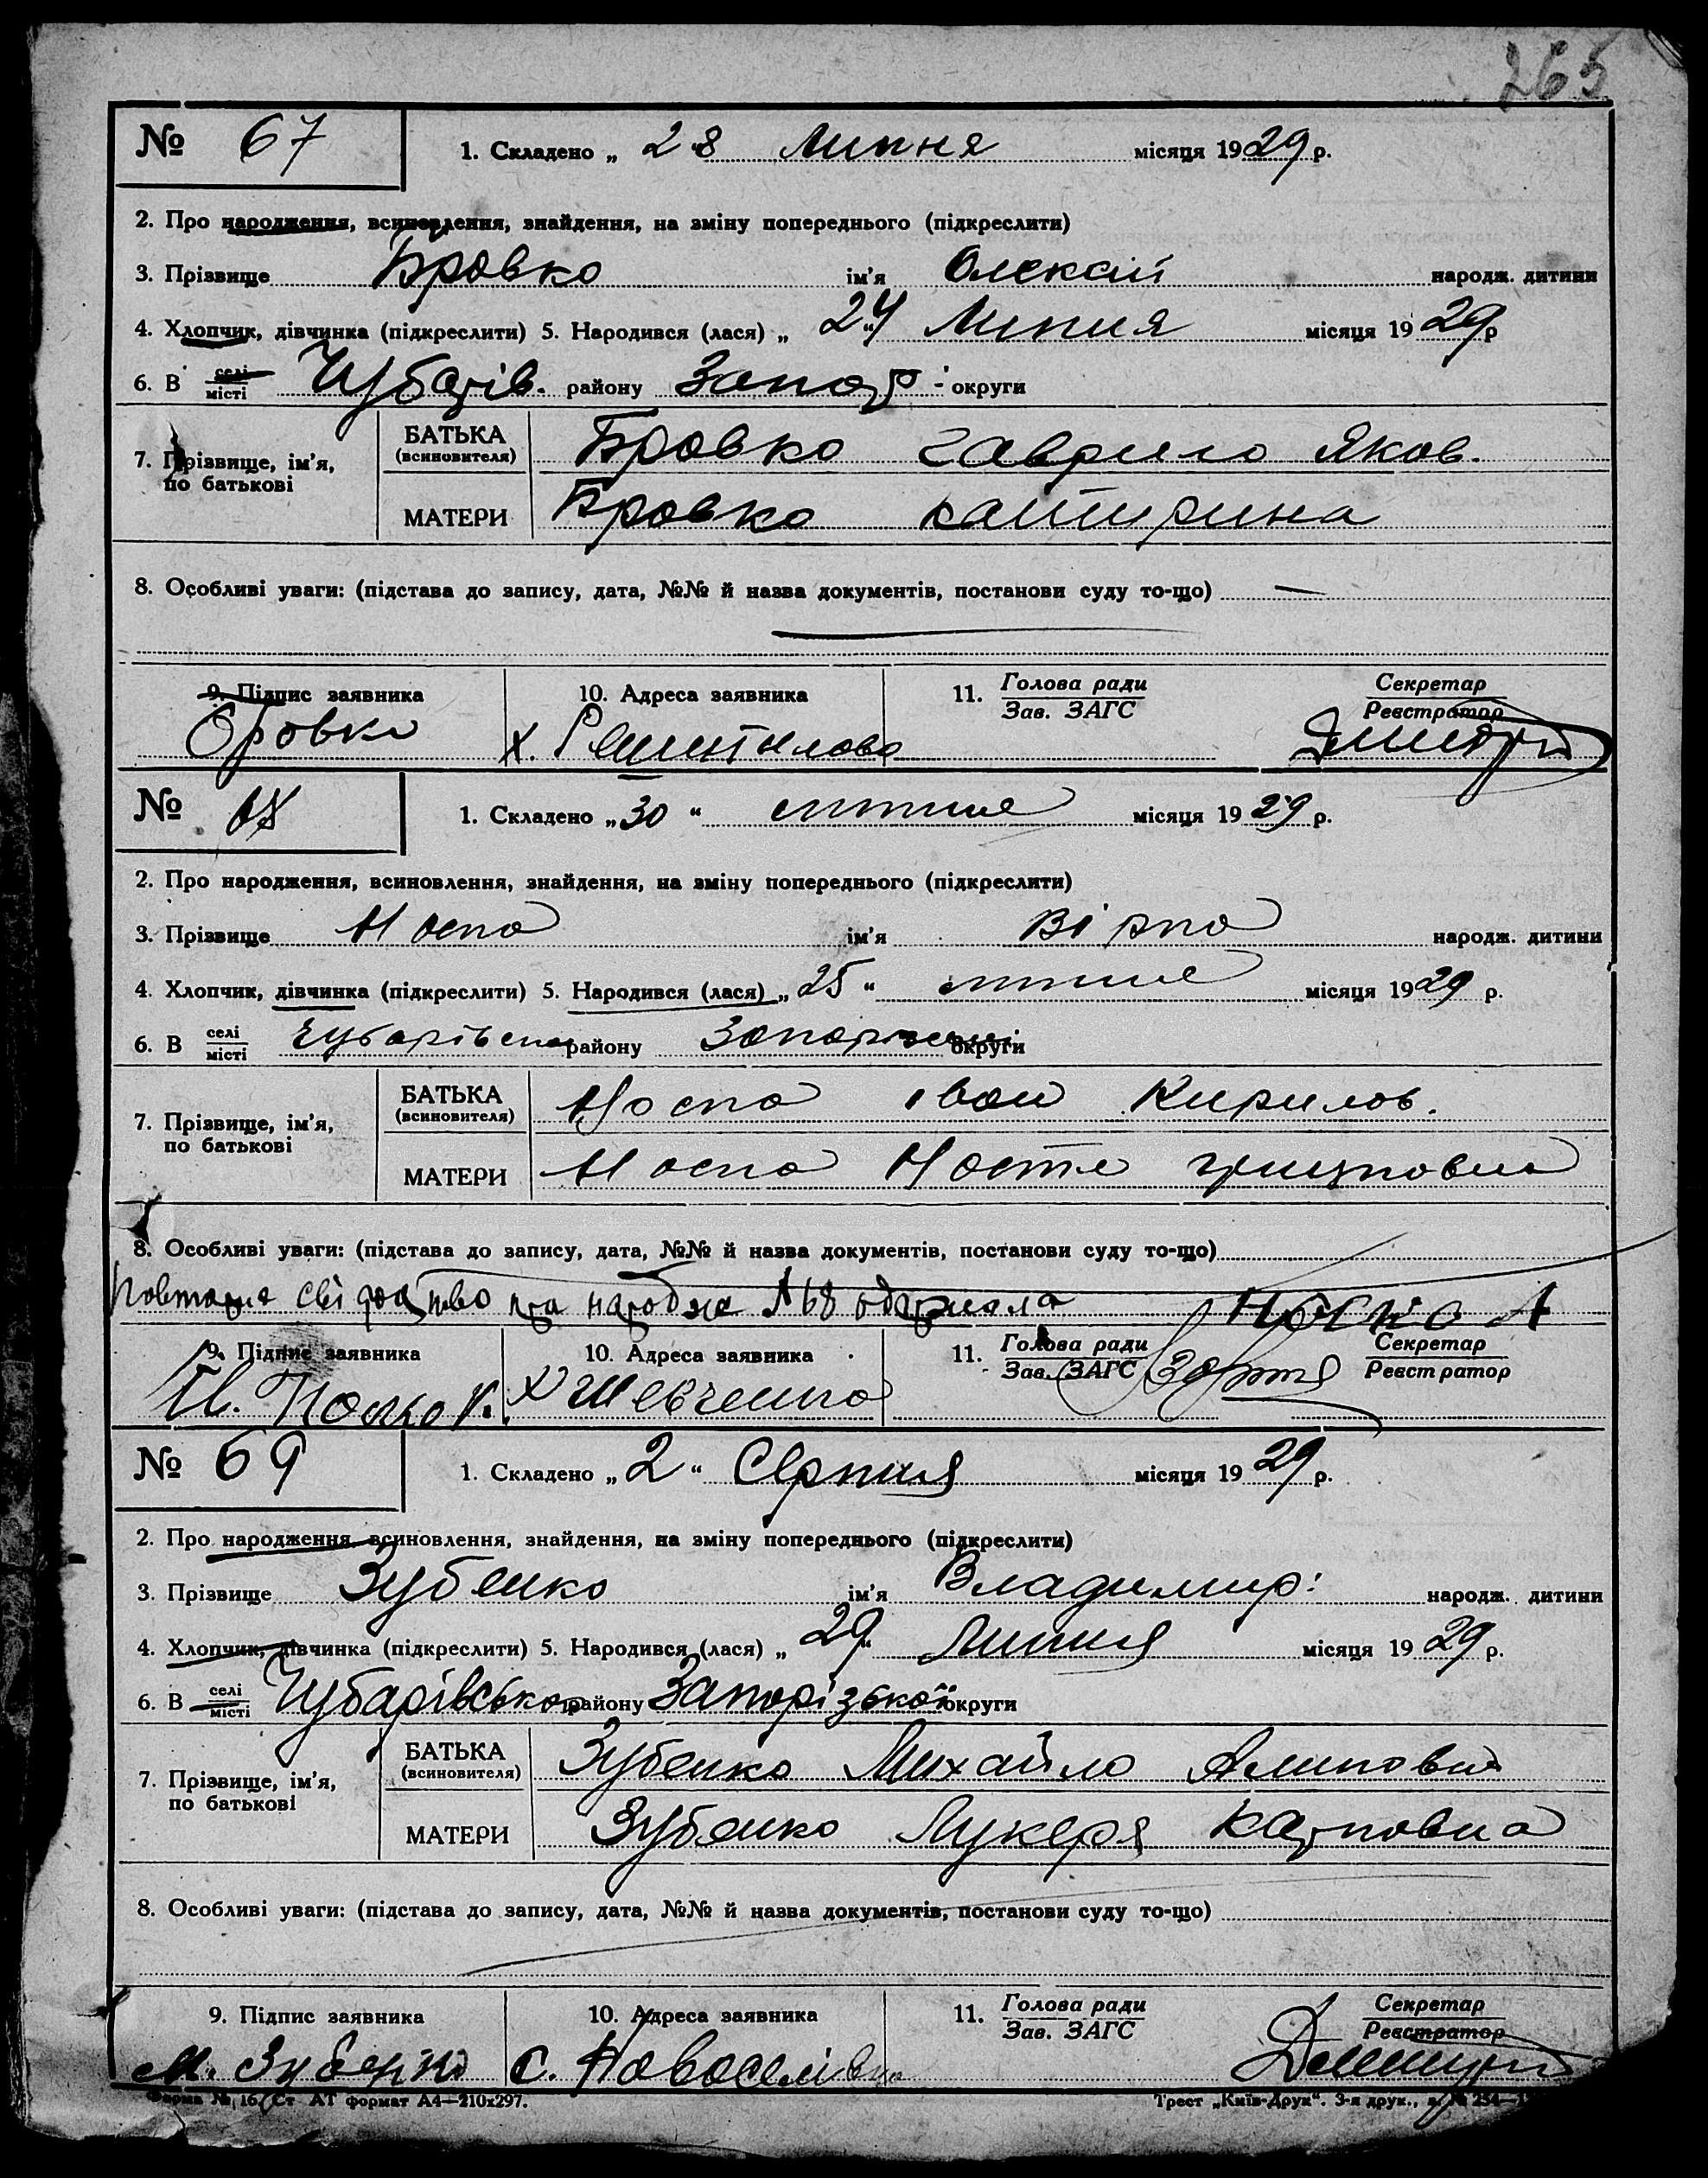 265
№ 67 1. Складено „ 28 " Липня місяця 1929 р.
2. Про народження, всиновлення, знайдення, на зміну попереднього (підкреслити)
3. Прізвище Бровко ім'я Олексій народж. дитини
4. Хлопчик, дівчинка (підкреслити) 5. Народився (лася) „ 24 " Липня місяця 1929 р
6. В селі місті Чубарів. району Запор. округи
БАТЬКА (всиновителя) Бровко Гаврило Яков.
7. Прізвище, ім'я, по батькові
МАТЕРИ Бровко Катирина
8. Особливі уваги: (підстава до запису, дата, №№ й назва документів, постанови суду то-що)
9. Підпис заявника 10. Адреса заявника 11. Голова ради Зав. ЗАГС Секретар Реєстратор
Бровко х.
№ 68 1. Складено „ 30 " липня місяця 1929 р.
2. Про народження, всиновлення, знайдення, на зміну попереднього (підкреслити)
3. Прізвище Носко ім'я Віра народж. дитини
4. Хлопчик, дівчинка (підкреслити) 5. Народився (лася) „ 25 " липня місяця 1929 р.
6. В селі місті району округи
БАТЬКА (всиновителя) Носко Іван Кирилов.
7. Прізвище, ім'я, по батькові
МАТЕРИ Носко Настя
8. Особливі уваги: (підстава до запису, дата, №№ й назва документів, постанови суду то-що)
Повторне свідоцтво про народже №68 одержала Носко А
9. Підпис заявника 10. Адреса заявника 11. Голова ради Зав. ЗАГС Секретар Реєстратор
Ів. Носко К. х Шевченка
№ 69 1. Складено „ 2 " Серпня місяця 1929 р.
2. Про народження, всиновлення, знайдення, на зміну попереднього (підкреслити)
3. Прізвище Зубенко ім'я Владимир народж. дитини
4. Хлопчик, дівчинка (підкреслити) 5. Народився (лася) „ 29 " Липня місяця 1929 р.
6. В селі місті Чубарівського району Запорізької округи
БАТЬКА (всиновителя) Зубенко Михайло
7. Прізвище, ім'я, по батькові
МАТЕРИ Зубенко Лукеря Карповна
8. Особливі уваги: (підстава до запису, дата, №№ й назва документів, постанови суду то-що)
9. Підпис заявника 10. Адреса заявника 11. Голова ради Зав. ЗАГС Секретар Реєстратор
М. Зубенко с. Новоселівка
Форма № 16. Ст АТ формат А4—210х297. Трест „Київ-Друк". 3-я друк.,